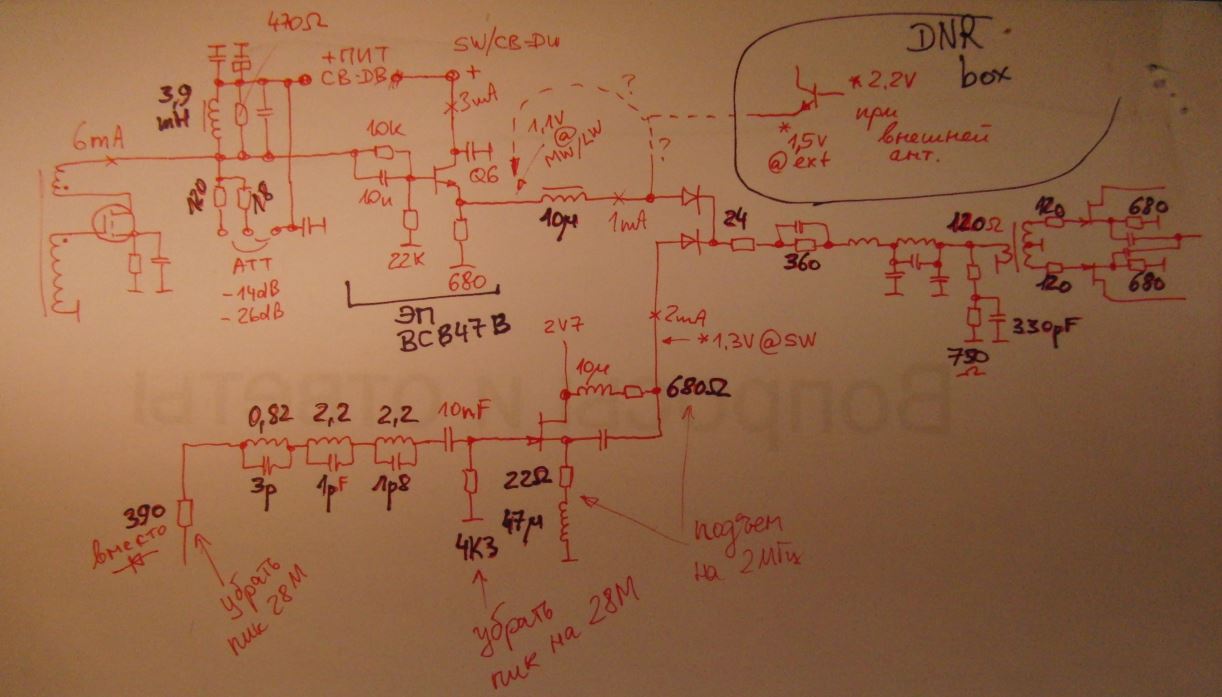 470Ω
+ПИТ
СВ-DВ
SW/CB-DW
+
3mA
3,9
mH
6mA
10k
10n
22K
Q6
680
ЭП
BC847B
АТТ
-14dB
-26dB
1,1V
@
MW/LW
?
?
10μ
1mA
DNR
box
*2,2V
при
внешней
ант.
*
1,5V
@ext
24
360
120Ω
120
680
120
680
330pF
750
Ω
2mA
*1,3V@SW
2V7
10μ
680Ω
0,82
2,2
2,2
10nF
3p
1pF
1p8
22Ω
47μ
4K3
390
вместо
убрать
пик 28М
убрать
пик на 28М
подъем
на 2МГц
Вопросы и ответы